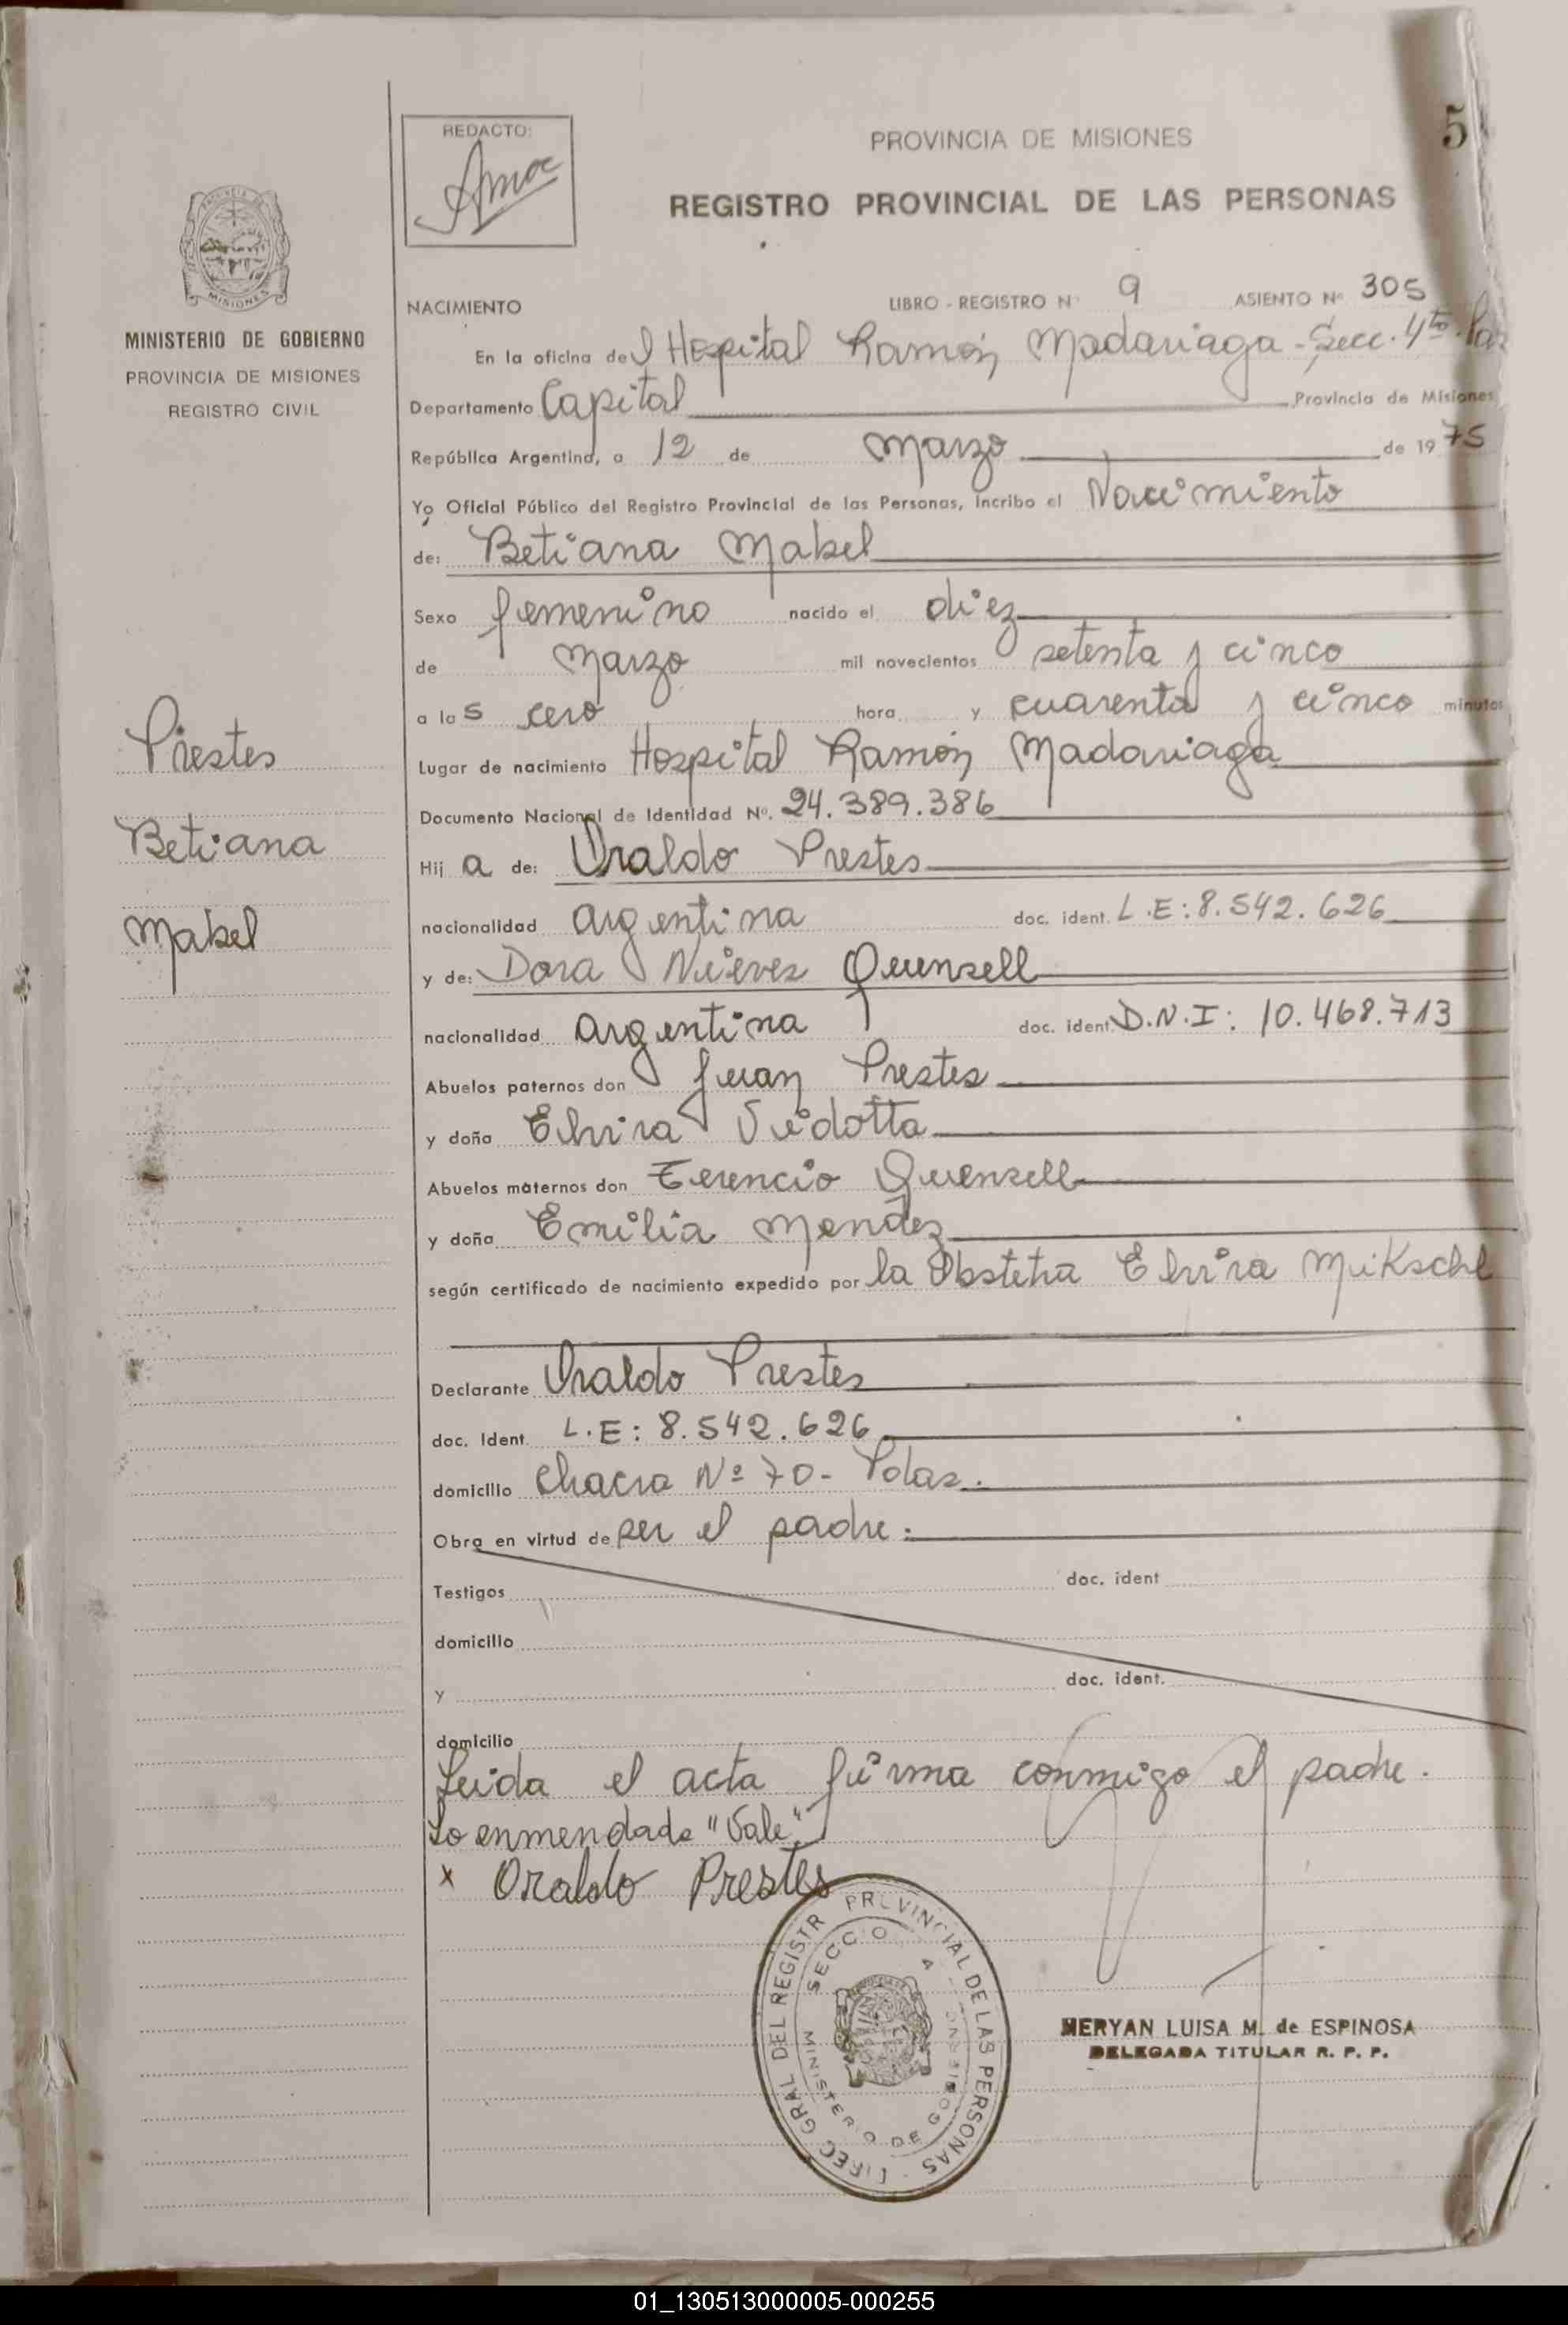 5
REDACTO:
PROVINCIA DE MISIONES
REGISTRO PROVINCIAL DE LAS PERSONAS
MISIONES
MINISTERIO DE GOBIERNO
PROVINCIA DE MISIONES
REGISTRO CIVIL
NACIMIENTO LIBRO - REGISTRO Nº 9 ASIENTO Nº 305
En la oficina del Hospital Ramón Madariaga - Secc. 4ta.
Departamento Capital Provincia de Misiones
República Argentina, a 12 de Marzo de 1975
Yo Oficial Público del Registro Provincial de las Personas, incribo el Nacimiento
de: Betiana Mabel
Sexo femenino nacido el diez
de Marzo mil novecientos setenta y cinco
a las cero hora y cuarenta y cinco minutos
Lugar de nacimiento Hospital Ramón Madariaga
Documento Nacional de Identidad Nº. 24.389.386
Hija de: Oraldo Prestes
nacionalidad argentina doc. ident. L.E: 8.542.626
y de: Dora Nieves Quensell
nacionalidad argentina doc. ident. D.N.I: 10.468.713
Abuelos paternos don Juan Prestes
y doña Elvira Vidotta
Abuelos maternos don Terencio Quensell
y doña Emilia Mendez
según certificado de nacimiento expedido por la Obstetra Elvira
Declarante Oraldo Prestes
doc. Ident. L.E: 8.542.626
domicilio Chacra Nº 70 - Pdas.
Obra en virtud de ser el padre.
Testigos doc. ident
domicilio
y doc. ident.
domicilio
Leida el acta firma conmigo el padre.
Lo enmendado "Vale"
x Oraldo Prestes
Prestes
Betiana
Mabel
MINISTERIO DE GOBIERNO
MERYAN LUISA M. de ESPINOSA
DELEGADA TITULAR R. P. P.
01_130513000005-000255